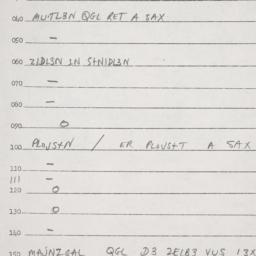 040 MUTLBN QGL RET A SAX
050 —
060 ZIDLSN IN S+NIDLBN
070 —
080 —
090 o
100 PLOUS+N / ER PLOUS+T A SAX
110 —
111 —
120 o
130 o
140 —
150 MAINZGAL QGL D3 2EIB3 VUS 13X